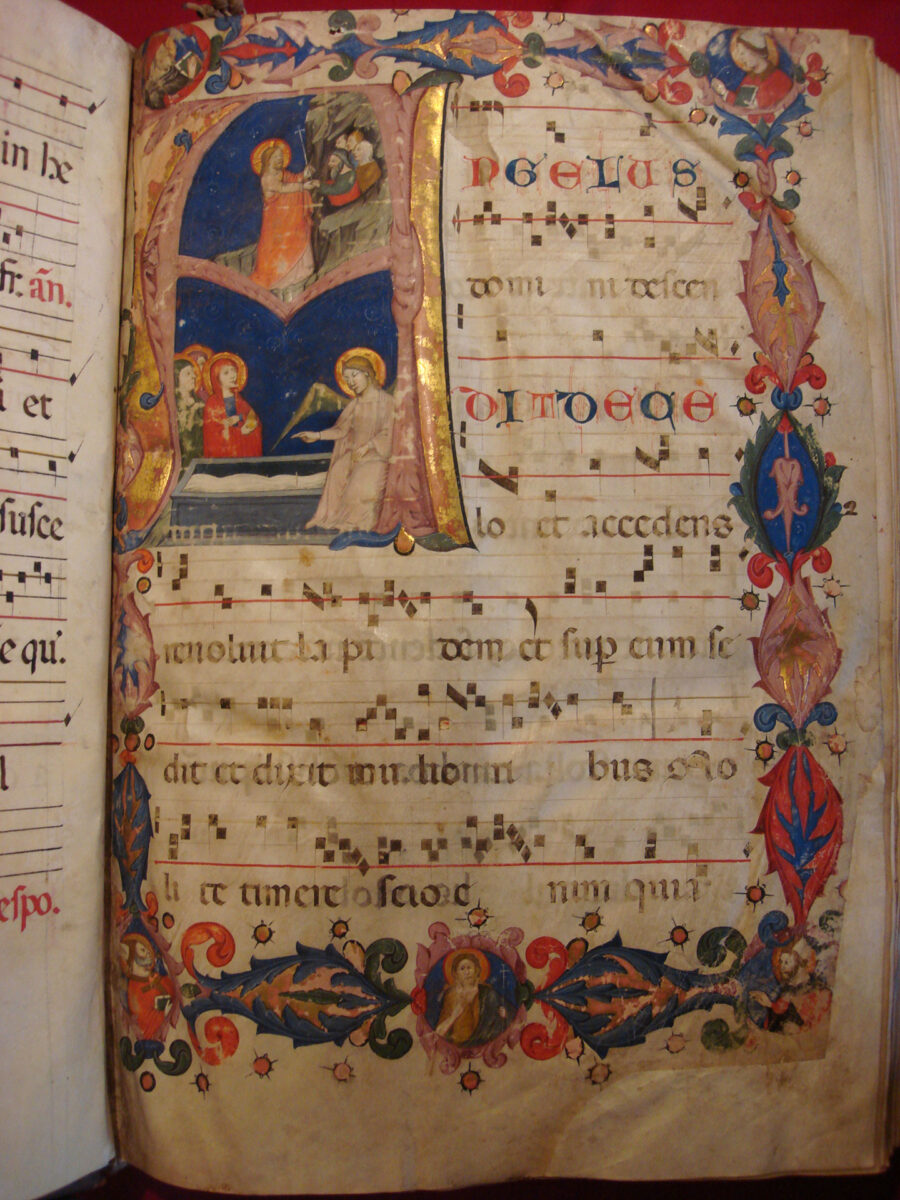 in he
fr. an̄.
et
susce
e qu.
l
espo.
ANGELUS
domi ni descen
DIT DE CE
lo et accedens
reuoluit la pi dem et sup eum se
dit et dixit bus No
li te timere scio e nim quia
2